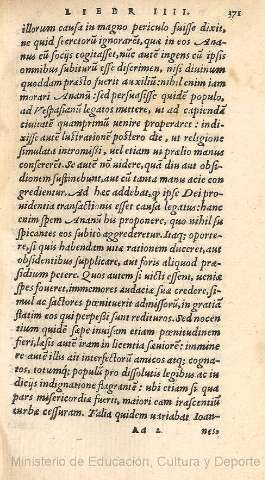 LIBER IIII. 371
illorum causa in magno periculo fuisse dixit,
ne quid secretorũ ignorarẽt, qua in eos Ana-
nus cũ socijs cogitasset, nũc autẽ ingens cũ ipsis
omnibus subiturũ esse discrimen, nisi diuinum
quoddam præsto fuerit auxiliũ: nihil enim iam
morari Ananũ: sed persuasisse quidẽ populo,
ad Vespasianũ legatos mittere, ut ad capiendã
ciuitatẽ quamprimũ uenire properaret: indi-
xisse autẽ lustrationẽ postero die, ut religione
simulata intromissi, uel etiam ui prælio manus
consererẽt. Se autẽ nõ uidere, quã diu aut obsi-
dionem sustinebunt, aut cũ tanta manu acie con
gredientur. Ad hæc addebat, ꝙ ipse Dei pro-
uidentia transactionis esset causa legatus: hanc
enim spem Ananũ his proponere, quo nihil su
spicantes eos subitò aggrederetur. Itaq; oporte-
re, si quis habendam uitæ rationem duceret, aut
obsidentibus supplicare, aut foris aliquod præ-
sidium petere. Quos autem si uicti essent, ueniæ
spes foueret, immemores audaciæ suæ credere, si-
mul ac factores pœnituerit admissorũ, in gratiã
statim eos qui perpessi sunt redituros. Sed nocen
tium quidẽ sæpe inuisam etiam pœnitudinem
fieri, læsis autẽ iram in licentia sæuiorẽ: immine
re autẽ illis ait interfectorũ amicos atq; cogna-
tos, totumq; populũ pro dissolutis legibus ac iu
dicijs indignatione flagrantẽ: ubi etiam si qua
pars misericordiæ fuerit, maiori eam irascentiũ
turbæ cessuram. Talia quidem uariabat Ioan-
Aa 2 nes,
Ministerio de Educación, Cultura y Deporte